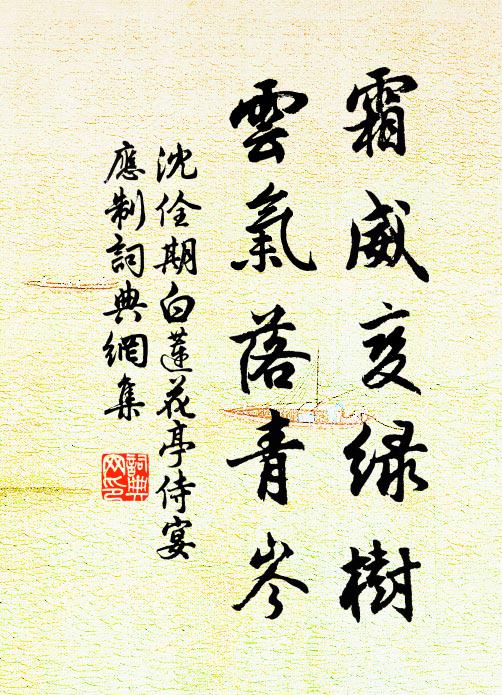 霜威变绿樹
雲氣落青岑
沈佺期白蓮花亭侍宴
應制詞典網集
詞典网印